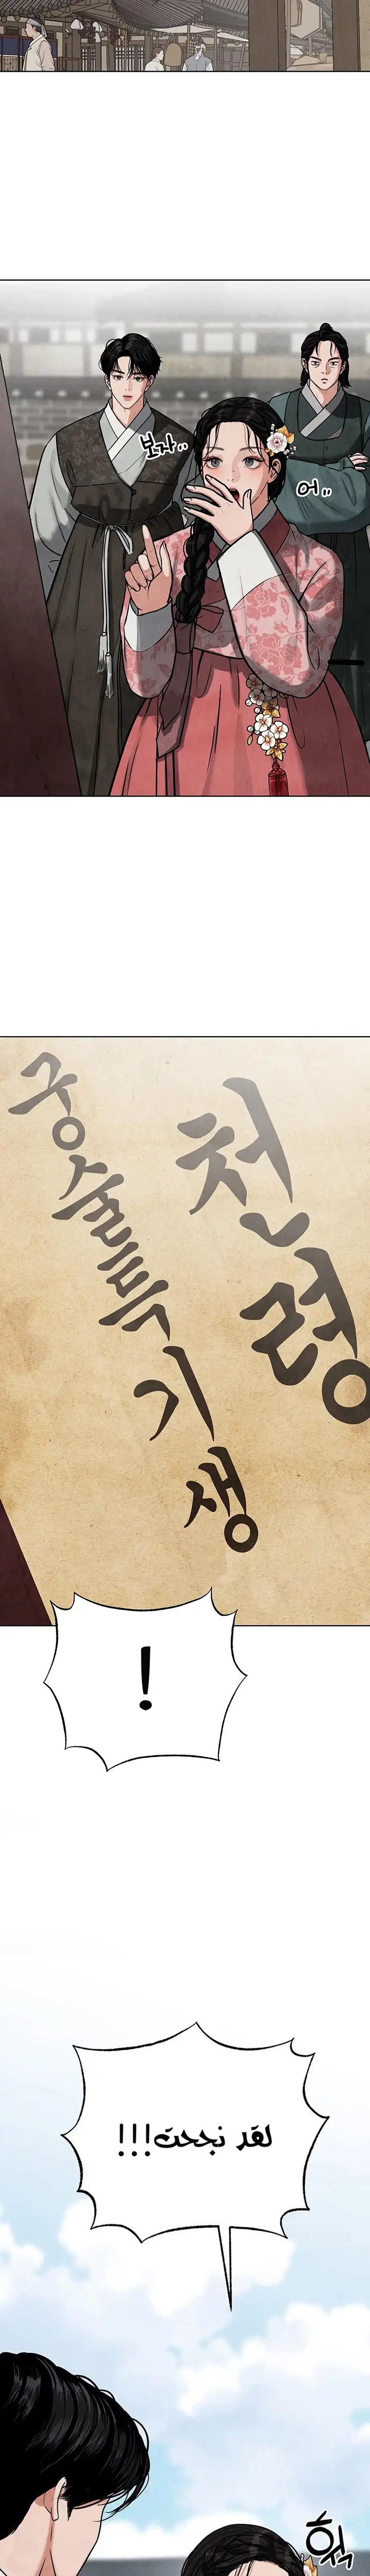 보자..
어..
천령
궁술특기생
!
لقد نجحت!!!
헉